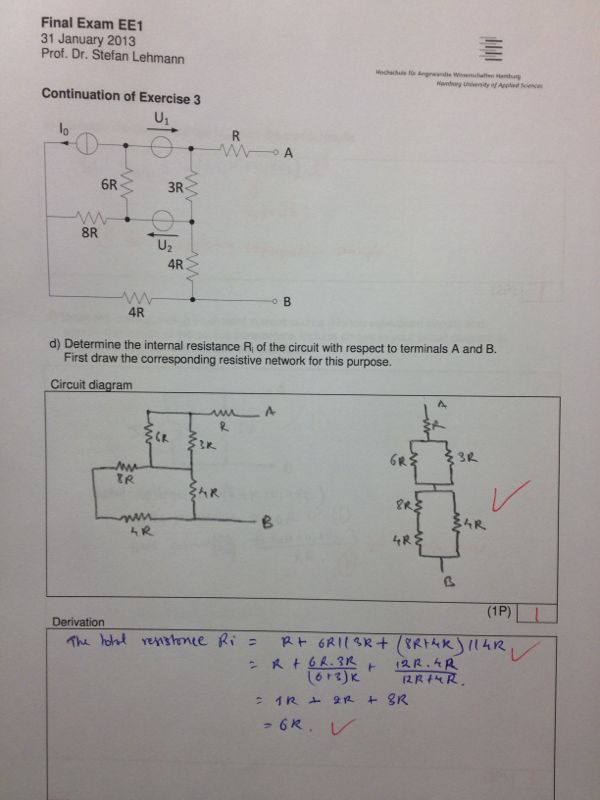 Final Exam EE1
31 January 2013
Prof. Dr. Stefan Lehmann
Hochschule für Angewandte Wissenschaften Hamburg
Hamburg University of Applied Sciences
Continuation of Exercise 3
U₁
I₀
R
A
6R
3R
8R
U₂
4R
4R
B
d) Determine the internal resistance Rᵢ of the circuit with respect to terminals A and B.
First draw the corresponding resistive network for this purpose.
Circuit diagram
A
R
6R
3R
8R
4R
4R
B
A
R
6R
3R
8R
4R
4R
B
(1P) 1
Derivation
The total resistance Ri = R + 6R || 3R + (8R+4R) || 4R
= R + 6R.3R/(6+3)R + 12R.4R/12R+4R.
= 1R + 2R + 3R
= 6R.